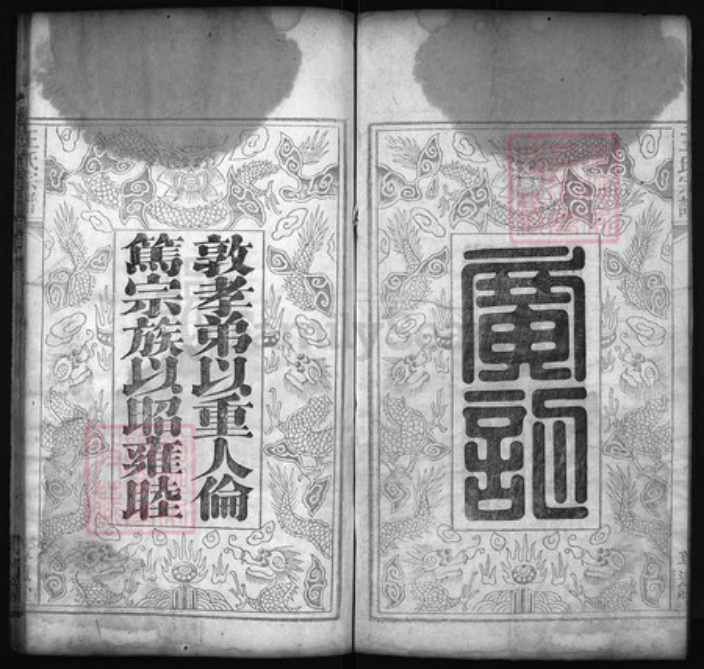 廣訓
敦孝弟以重人倫
篤宗族以昭雍睦